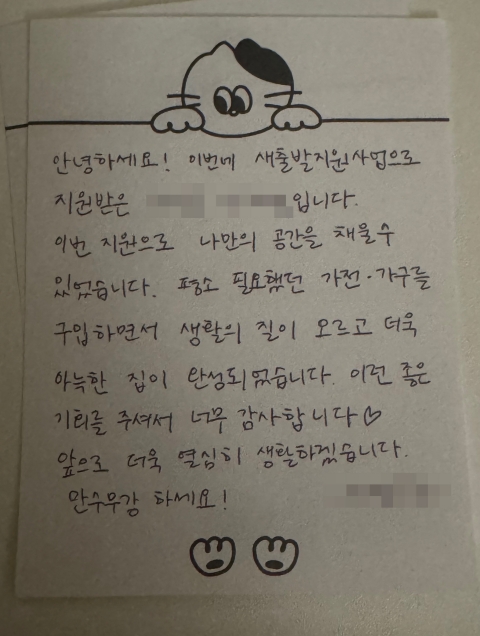 안녕하세요! 이번에 새출발지원사업으로
지원받은 입니다.
이번 지원으로 나만의 공간을 채울수
있었습니다. 평소 필요했던 가전·가구를
구입하면서 생활의 질이 오르고 더욱
아늑한 집이 완성되었습니다. 이런 좋은
기회를 주셔서 너무 감사합니다♡
앞으로 더욱 열심히 생활하겠습니다.
만수무강 하세요!